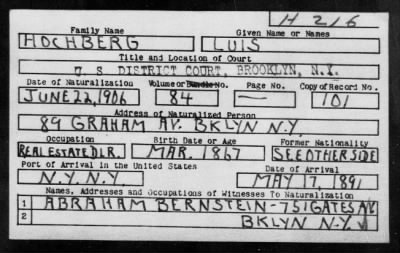 H 216
Family Name Given Name or Names
HOCHBERG LUIS
Title and Location of Court
U S DISTRICT COURT, BROOKLYN, N.Y.
Date of Naturalization Volume or Bundle No. Page No. Copy of Record No.
JUNE 22, 1906 84 — 101
Address of Naturalized Person
89 GRAHAM AV. BKLYN N.Y.
Occupation Birth Date or Age Former Nationality
REAL ESTATE DLR. MAR. 1867 SEE OTHER SIDE
Port of Arrival in the United States Date of Arrival
N.Y. N.Y MAY 17, 1891
Names, Addresses and Occupations of Witnesses To Naturalization
1 ABRAHAM BERNSTEIN - 751 GATES AV
2 BKLYN N.Y.